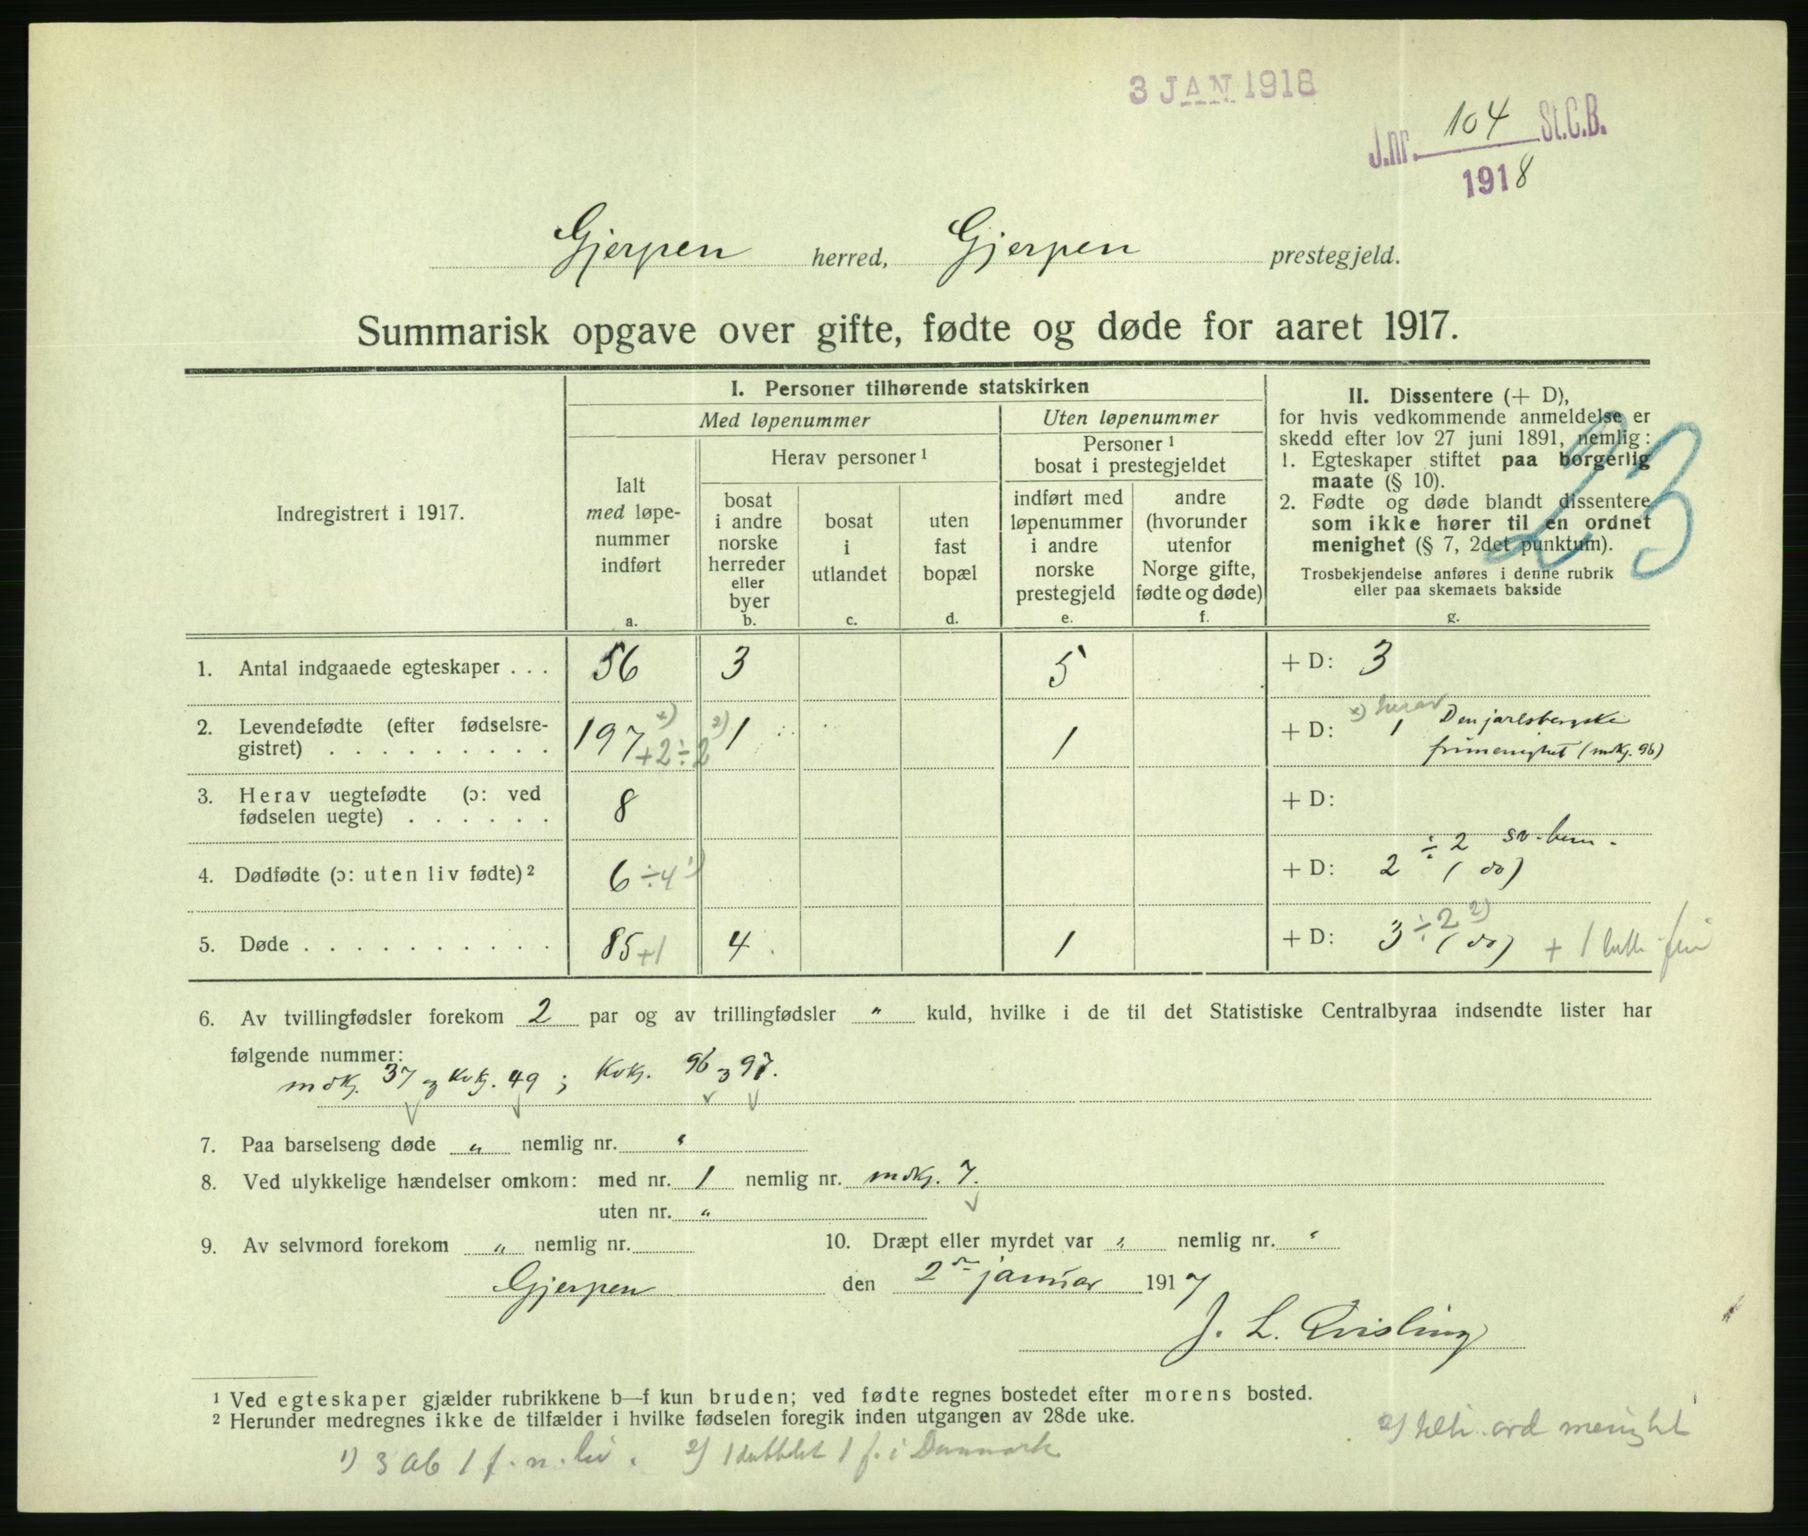 3 JAN 1918
J.nr. 104 St.C.B.
1918
Gjerpen herred, Gjerpen prestegjeld.
Summarisk opgave over gifte, fødte og døde for aaret 1917.
Indregistrert i 1917.
I. Personer tilhørende statskirken
Med løpenummer
Uten løpenummer
Ialt
med løpe-
nummer
indført
a.
Herav personer ¹
bosat
i andre
norske
herreder
eller
byer
b.
bosat
i
utlandet
c.
uten
fast
bopæl
d.
Personer ¹
bosat i prestegjeldet
indført med
løpenummer
i andre
norske
prestegjeld
e.
andre
(hvorunder
utenfor
Norge gifte,
fødte og døde)
f.
II. Dissentere (+ D),
for hvis vedkommende anmeldelse er
skedd efter lov 27 juni 1891, nemlig:
1. Egteskaper stiftet paa borgerlig
maate (§ 10).
2. Fødte og døde blandt dissentere
som ikke hører til en ordnet
menighet (§ 7, 2det punktum).
Trosbekjendelse anføres i denne rubrik
eller paa skemaets bakside
g.
23
1. Antal indgaaede egteskaper . . . 56 3 5 + D: 3
2. Levendefødte (efter fødselsre-
gistret) . . . . . . . . . 197 x) +2÷2 2) 1 1 + D: x) herav 1 Den jarlsbergske
frimenighet (mdkj. 96)
3. Herav uegtefødte (ɔ: ved
fødselen uegte) . . . . . . 8 + D:
4. Dødfødte (ɔ: uten liv fødte) ² 6 ÷4 1) + D: 2 ÷ 2
( do )
5. Døde . . . . . . . . . . 85 +1 4 1 + D: 3 ÷2 2) ( do ) + 1
6. Av tvillingfødsler forekom 2 par og av trillingfødsler " kuld, hvilke i de til det Statistiske Centralbyraa indsendte lister har
følgende nummer:
mdkj. 37 og kvkj. 49 ; kvkj. 96 og 97.
7. Paa barselseng døde " nemlig nr. "
8. Ved ulykkelige hændelser omkom: med nr. 1 nemlig nr. mdkj. 7.
uten nr. "
9. Av selvmord forekom " nemlig nr.
10. Dræpt eller myrdet var " nemlig nr. "
Gjerpen den 2den januar 1917
J. L. Qvisling
¹ Ved egteskaper gjælder rubrikkene b—f kun bruden; ved fødte regnes bostedet efter morens bosted.
² Herunder medregnes ikke de tilfælder i hvilke fødselen foregik inden utgangen av 28de uke.
1) 3 ab 1 f. n. liv. 2) 1 dubblet 1 f. i Danmark
2) ord menighet